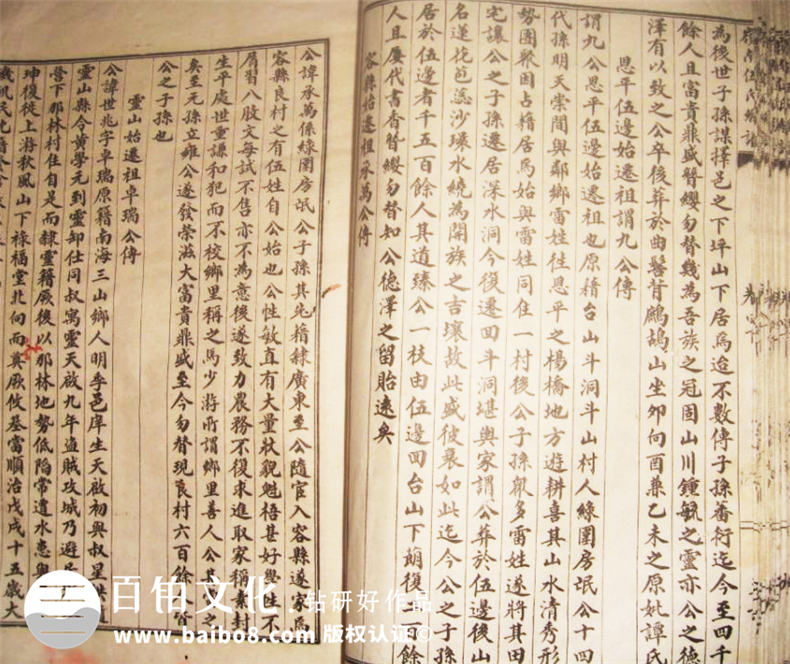 為後世子孫謀擇邑之下坪山下居焉迨不數傳子孫蕃衍迄今至四千
餘人且富貴鼎盛簪纓勿替幾為吾族之冠固山川鍾毓之靈亦公之德
澤有以致之公卒後葬於曲髻背鷓鴣山坐卯向酉兼乙未之原妣譚氏
恩平伍邊始遷祖謂九公傳
謂九公恩平伍邊始遷祖也原籍台山斗洞斗山村人緣圍房氓公十四
代孫明天崇間與鄰鄉雷姓徃恩平之楊橋地方遊耕喜其山水清秀形
勢團聚因占籍居焉始與雷姓同住一村後公子孫眾多雷姓遂將其田
宅讓公之子孫遷居深水洞今復遷回斗洞堪輿家謂公葬於伍邊後山
名蓮花芭蕊沙環水繞為開族之吉壤故此盛彼衰如此迄今公之子孫
居於伍邊者千五百餘人其道臻公一枝由伍邊回台山下蓢復二百餘
人且屢代書香簪纓勿替知公德澤之留貽遠矣
容縣始遷祖承萬公傳
公諱承萬係緣圍房氓公子孫其先籍隸廣東至公隨官入容縣遂家焉
容縣良村之有伍姓自公始也公性敏直有大量狀貌魁梧甚好學生不
屑習八股文每試不售亦不為意後遂致力農務不復求進取家稱
封
生平處世重謙和犯而不校鄉里稱之馬少游所謂鄉里善人公其
矣至元孫立雍公遂發榮滋大富貴鼎盛至今勿替現良村六百餘
皆
公之子孫也
靈山始遷祖卓瑞公傳
公諱世兆字卓瑞原籍南海三山鄉人明季邑庠生天啟初與叔星
靈山縣令黃學元到靈卸仕同叔寓靈天啟九年盜賊攻城乃避
營下那林村住自是而隸靈籍厥後以那林地勢低陷常遭水患
珅復徙上游秋風山下祿福堂北向而奠厥攸基富順治戊戌十五歲大
百铂文化
钻研好作品
www.baibo8.com 版权认证©